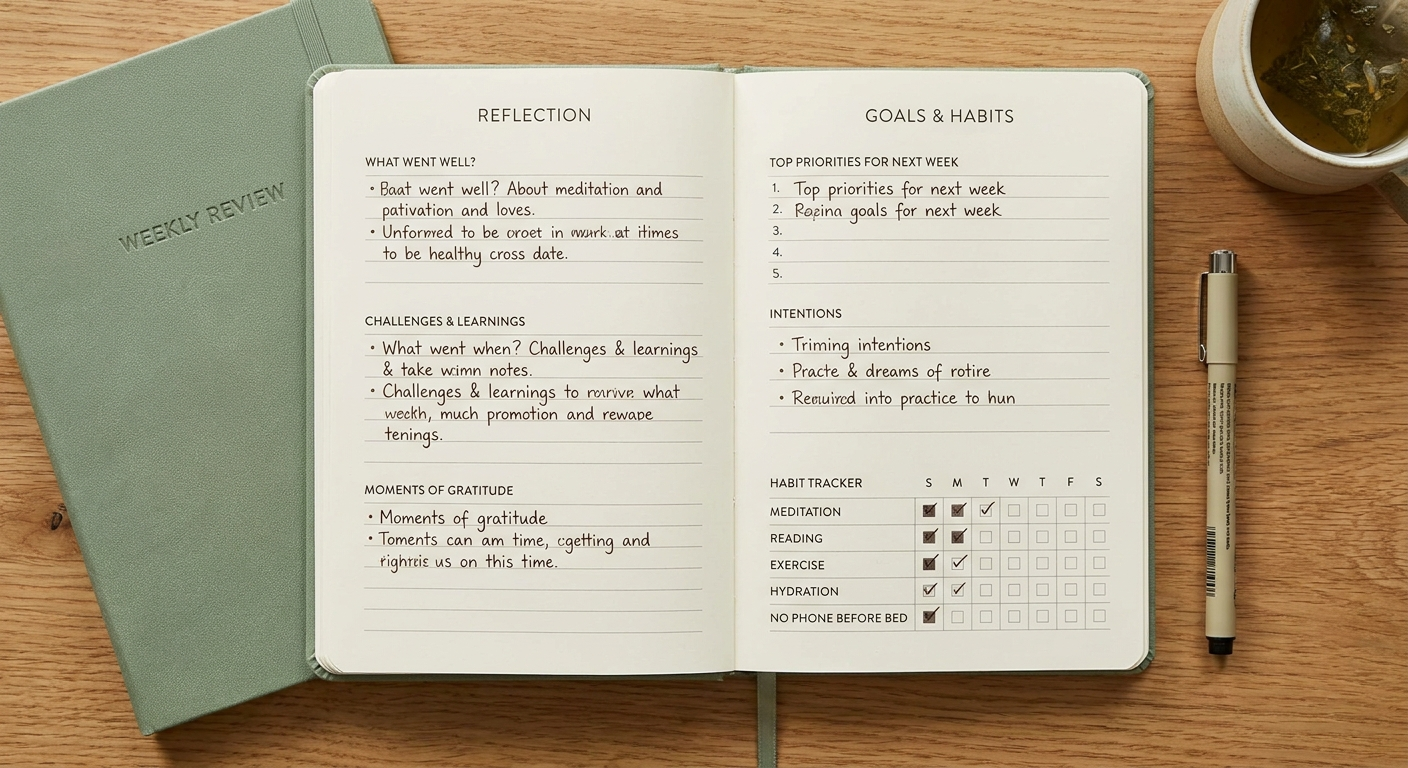 WEEKLY REVIEW
REFLECTION
WHAT WENT WELL?
• Baat went well? About meditation and
pativation and loves.
• Unformed to be oroet in at itimes
to be healthy cross date.
CHALLENGES & LEARNINGS
• What went when? Challenges & learnings
& take notes.
• Challenges & learnings to what
much promotion and rewape
tenings.
MOMENTS OF GRATITUDE
• Moments of gratitude
• Toments can am time, and
us on this time.
GOALS & HABITS
TOP PRIORITIES FOR NEXT WEEK
1. Top priorities for next week
2. goals for next week
3.
4.
5.
INTENTIONS
• Triming intentions
• Practe & dreams of rotire
• into practice to hun
HABIT TRACKER S M T W T F S
MEDITATION
READING
EXERCISE
HYDRATION
NO PHONE BEFORE BED